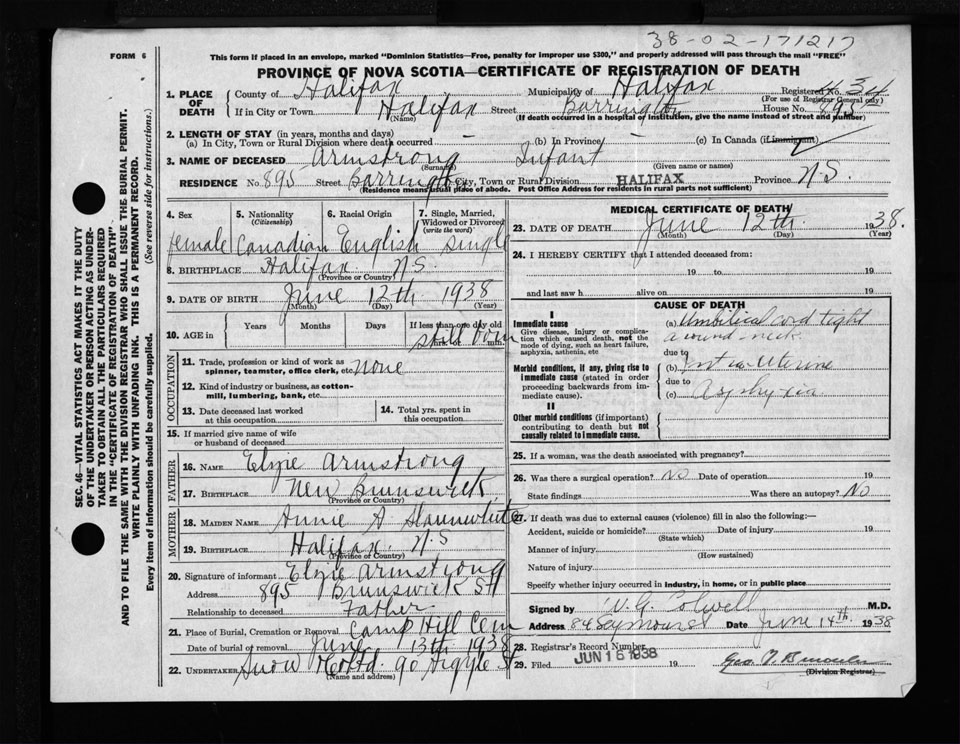 38-02-171217
FORM 6
This form if placed in an envelope, marked "Dominion Statistics—Free, penalty for improper use $300," and properly addressed will pass through the mail "FREE"
PROVINCE OF NOVA SCOTIA—CERTIFICATE OF REGISTRATION OF DEATH
1. PLACE OF DEATH
County of Halifax Municipality of Halifax Registered No. 434
(For use of Registrar General only)
If in City or Town Halifax Street Barrington House No. 895
(Name) (If death occurred in a hospital or institution, give the name instead of street and number)
2. LENGTH OF STAY (in years, months and days)
(a) In City, Town or Rural Division where death occurred - (b) In Province (c) In Canada (if immigrant)
3. NAME OF DECEASED Armstrong Infant
(Surname) (Given name or names)
RESIDENCE No. 895 Street Barrington City, Town or Rural Division HALIFAX Province N.S.
(Residence means usual place of abode. Post Office Address for residents in rural parts not sufficient)
4. Sex 5. Nationality (Citizenship) 6. Racial Origin 7. Single, Married, Widowed or Divorced (write the word)
female Canadian English single
8. BIRTHPLACE Halifax N.S.
(Province or Country)
9. DATE OF BIRTH June 12th 1938
(Month) (Day) (Year)
10. AGE in Years Months Days If less than one day old
still born
OCCUPATION
11. Trade, profession or kind of work as spinner, teamster, office clerk, etc. none
12. Kind of industry or business, as cotton-mill, lumbering, bank, etc.
13. Date deceased last worked at this occupation 14. Total yrs. spent in this occupation
15. If married give name of wife or husband of deceased
FATHER
16. NAME Elzie Armstrong
17. BIRTHPLACE New Brunswick
(Province or Country)
MOTHER
18. MAIDEN NAME Annie A Slaunwhite
19. BIRTHPLACE Halifax N.S
(Province or Country)
20. Signature of informant Elzie Armstrong
Address 895 Brunswick St
Relationship to deceased Father
21. Place of Burial, Cremation or Removal Camp Hill Cem
Date of burial or removal June 13th 1938
22. UNDERTAKER Snow & Co Ltd. 90 Argyle St
(Name and address)
MEDICAL CERTIFICATE OF DEATH
23. DATE OF DEATH June 12th 1938.
(Month) (Day) (Year)
24. I HEREBY CERTIFY that I attended deceased from:
19 to 19
and last saw h alive on 19
CAUSE OF DEATH
I
Immediate cause
Give disease, injury or complication which caused death, not the mode of dying, such as heart failure, asphyxia, asthenia, etc
(a) Umbilical cord tight
around neck
due to
Morbid conditions, if any, giving rise to immediate cause (stated in order proceeding backwards from immediate cause).
(b) Intra-Uterine
due to
(c) Asphyxia
II
Other morbid conditions (if important) contributing to death but not causally related to immediate cause.
25. If a woman, was the death associated with pregnancy?
26. Was there a surgical operation? No Date of operation 19
State findings Was there an autopsy? No
27. If death was due to external causes (violence) fill in also the following:—
Accident, suicide or homicide? Date of injury 19
(State which)
Manner of injury
(How sustained)
Nature of injury
Specify whether injury occurred in industry, in home, or in public place
Signed by Colwell M.D.
Address 84 Seymour St Date June 14th 1938
28. Registrar's Record Number
29. Filed JUN 16 1938 19
(Division Registrar)
SEC. 46—VITAL STATISTICS ACT MAKES IT THE DUTY
OF THE UNDERTAKER OR PERSON ACTING AS UNDER-
TAKER TO OBTAIN ALL THE PARTICULARS REQUIRED
IN THE "CERTIFICATE OF REGISTRATION OF DEATH"
AND TO FILE THE SAME WITH THE DIVISION REGISTRAR WHO SHALL ISSUE THE BURIAL PERMIT.
WRITE PLAINLY WITH UNFADING INK. THIS IS A PERMANENT RECORD.
Every item of information should be carefully supplied. (See reverse side for instructions.)